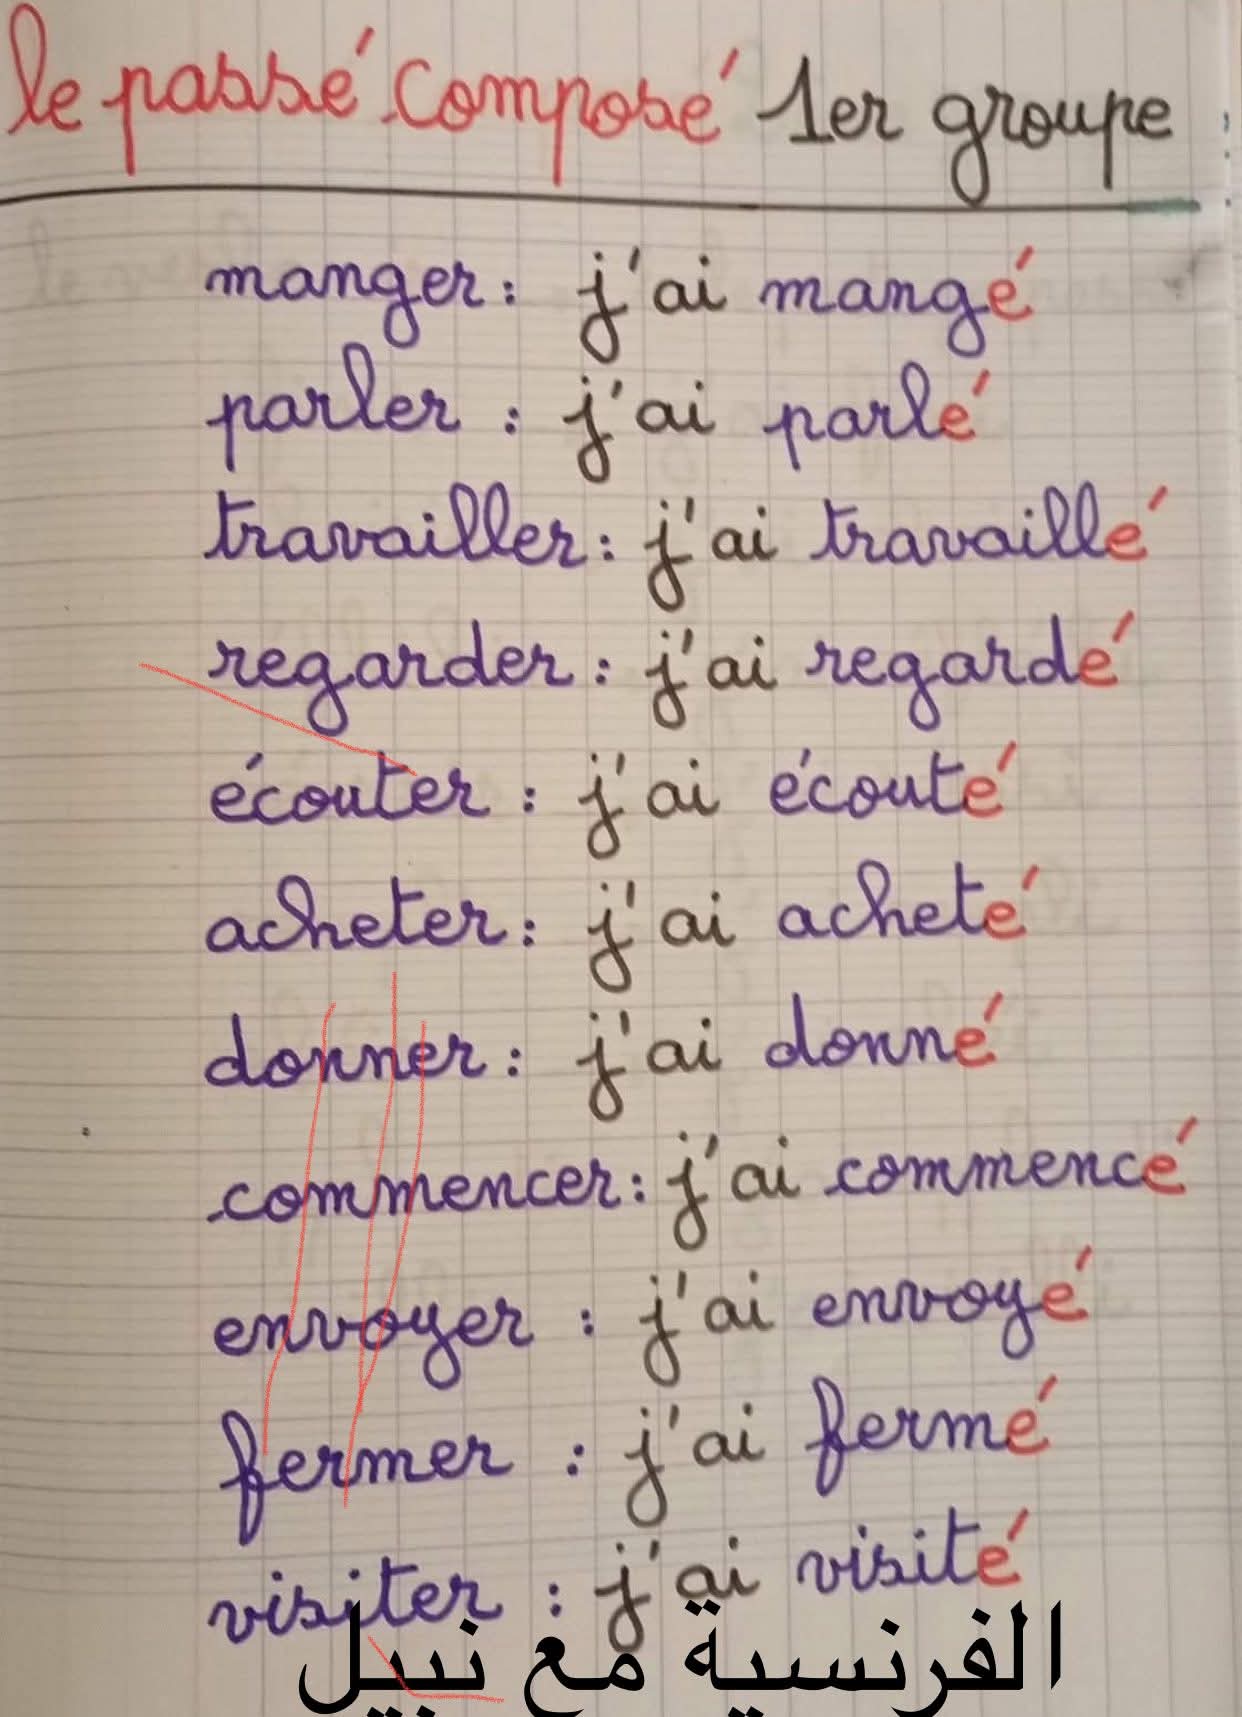 le passé composé 1er groupe
manger : j'ai mangé
parler : j'ai parlé
travailler : j'ai travaillé
regarder : j'ai regardé
écouter : j'ai écouté
acheter : j'ai acheté
donner : j'ai donné
commencer : j'ai commencé
envoyer : j'ai envoyé
fermer : j'ai fermé
visiter : j'ai visité
الفرنسية مع نبيل